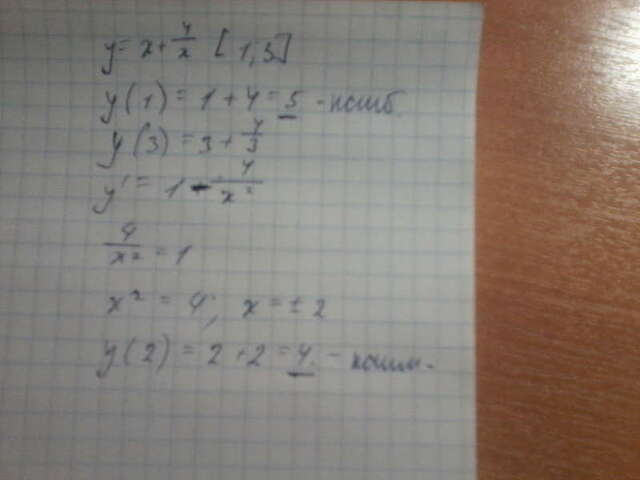 y = x + 4/x [1; 3]
y(1) = 1 + 4 = 5 - наиб.
y(3) = 3 + 4/3
y' = 1 - 4/x²
4/x² = 1
x² = 4; x = ± 2
y(2) = 2 + 2 = 4. - наим.